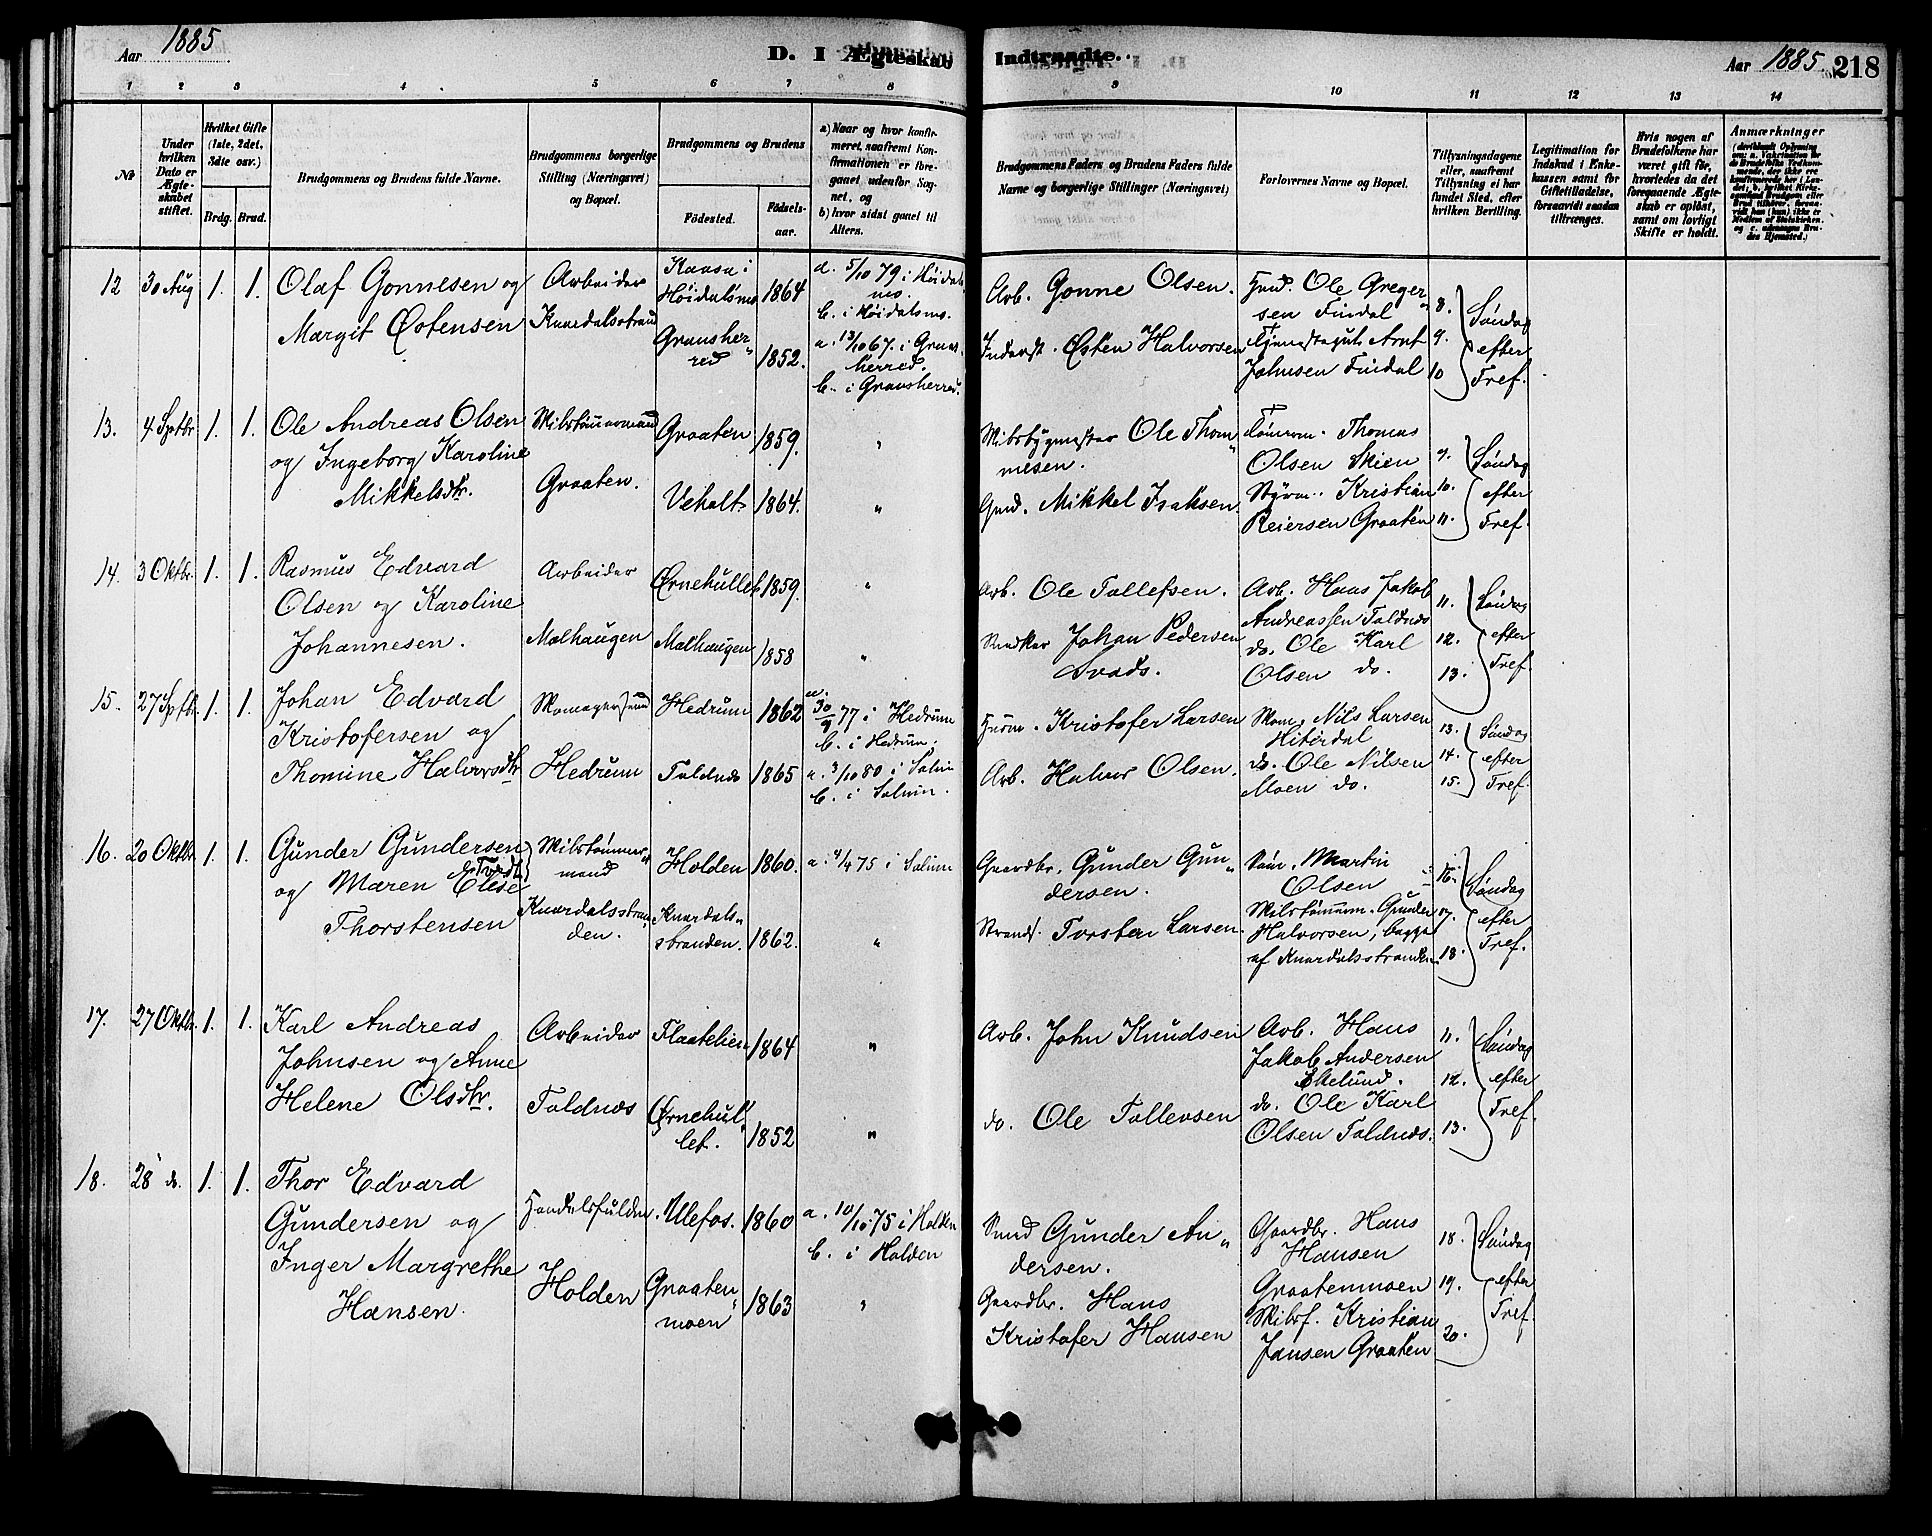 Aar 1885
D. I Ægteskab Indtraadte.
Aar 1885. 218
1 2 3 4 5 6 7 8 9 10 11 12 13 14
No.
Under hvilken Dato er Ægteskabet stiftet.
Hvilket Gifte (1ste, 2det, 3die osv.)
Brdg. Brud.
Brudgommens og Brudens fulde Navne.
Brudgommens borgerlige Stilling (Næringsvei) og Bopæl.
Brudgommens og Brudens
Fødested.
Fødselsaar.
a) Naar og hvor konfirmeret, saafremt Konfirmationen er foregaaet udenfor Sognet, og
b) hvor sidst gaaet til Alters.
Brudgommens Faders og Brudens Faders fulde Navne og borgerlige Stillinger (Næringsvei)
Forlovernes Navne og Bopæl.
Tillysningsdagene eller, saafremt Tillysning ei har fundet Sted, efter hvilken Bevilling.
Legitimation for Indskud i Enkekassen samt for Giftetilladelse, forsaavidt saadan tiltrænges.
Hvis nogen af Brudefolkene har været gift før, hvorledes da det foregaaende Ægteskab er opløst, samt om lovligt Skifte er holdt.
Anmærkninger
12 30 Aug 1. 1. Olaf Gonnesen og
Margit Østensen
Arbeider
Knardalsstrand
Kaasa i
Høidalsmo 1864
Gransherred 1852.
a. 5/10 79 i Høidalsmo.
b. i Høidalsmo.
a. 13/10 67. i Gransherred.
b. i Gransherred.
Arb. Gonne Olsen.
Inderst. Østen Halvorsen
Gmd. Ole Gregersen Findal
Tjenestegut Arnt
Johnsen Findal
8. 9. 10 Søndag efter Tref.
13. 4 Sptbr 1. 1. Ole Andreas Olsen
og Ingeborg Karoline
Mikkelsdtr.
Skibstømmermand
Graaten.
Graaten 1859.
Veholt 1864.
"
"
Skibsbygmester Ole Thommesen.
Gmd. Mikkel Isaksen.
Tømrm. Thomas
Olsen Skien
Styrm. Kristian
Reiersen Graaten
9. 10. 11. Søndag efter Tref.
14. 3 Oktbr. 1. 1. Rasmus Edvard
Olsen og Karoline
Johannesen.
Arbeider
Mælhaugen
Ørnehullet 1859.
Mælhaugen 1858
"
"
Arb. Ole Tollefsen.
Snedker Johan Pedersen
Arb. Hans Jakob
Andreassen Toldnes
do. Ole Karl
Olsen do.
11. 12. 13. Søndag efter Tref.
15. 27 Sptbr. 1. 1. Johan Edvard
Kristofersen og
Thomine Halvorsdtr
Skomagersvend
Hedrum
Hedrum 1862
Toldnes 1865
a. 30/9 77 i Hedrum
b. i Hedrum.
a. 3/10 80 i Solum
b. i Solum.
Husm. Kristofer Larsen
Arb. Halvor Olsen.
Skom. Nils Larsen
Hiterdal
do. Ole Nilsen
Moen do.
13. 14. 15. Søndag efter Tref.
16. 20 Oktbr 1. 1. Gunder Gundersen
og Maren Elise
Thorstensen
Skibstømmermand
Knardalsstranden.
Holden 1860.
Knardalsstranden. 1862.
a. 4/4 75 i Solum
"
Gaardbr. Gunder Gundersen.
Strands. Torsten Larsen.
Tøm. Martin
Olsen
Skibstømmerm. Gunder
Halvorsen, begge
af Knardalsstranden
16. 17. 18. Søndag efter Tref.
17. 27 Oktbr. 1. 1. Karl Andreas
Johnsen og Anne
Helene Olsdtr.
Arbeider
Toldnes
Flaatelien 1864
Ørnehullet. 1852
"
"
Arb. John Knudsen
do. Ole Tollevsen
Arb. Hans
Jakob Andersen
Ekelund.
do. Ole Karl
Olsen Toldnes.
11. 12. 13. Søndag efter Tref.
18. 28 do. 1. 1. Thor Edvard
Gundersen og
Inger Margrethe
Hansen.
Handelsfuldm.
Holden
Ulefos. 1860
Graatenmoen 1863
a. 10/10 75 i Holden
b. i Holden
"
Smed Gunder Andersen.
Gaardbr. Hans
Kristofer Hansen
Gaardbr. Hans
Hansen
Graatenmoen
Skibsf. Kristian
Jansen Graaten
18. 19. 20. Søndag efter Tref.